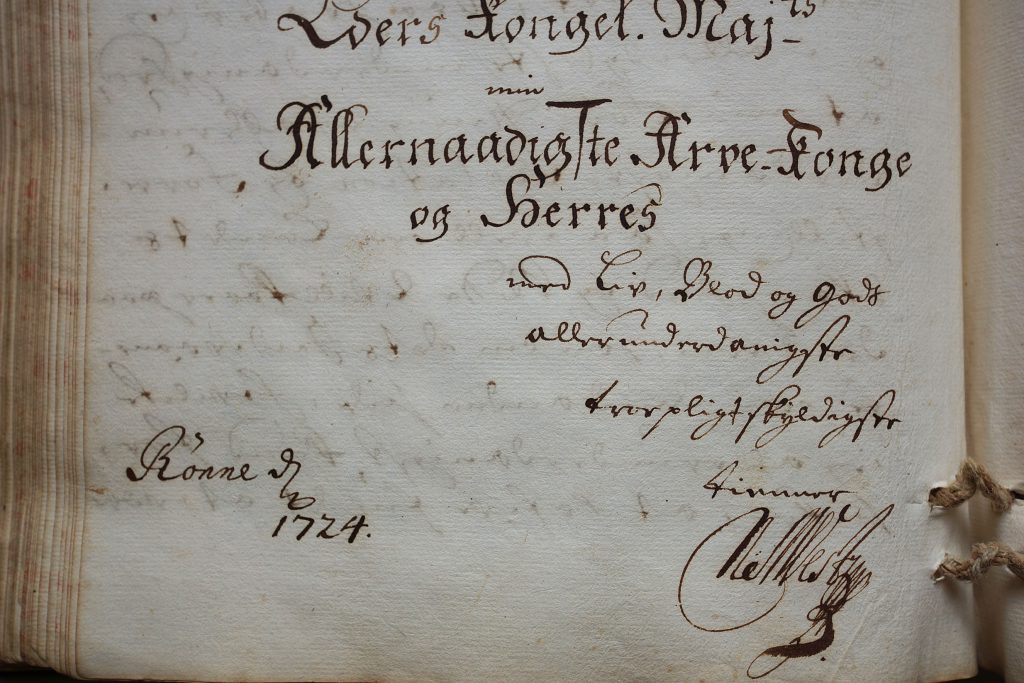 Eders Kongel. Majts
min
Allernaadigste Arve-Konge
og Herres
med Liv, Blod og Gods
allerunderdanigste
troepligtskyldigste
tienner
Rønne d
1724.